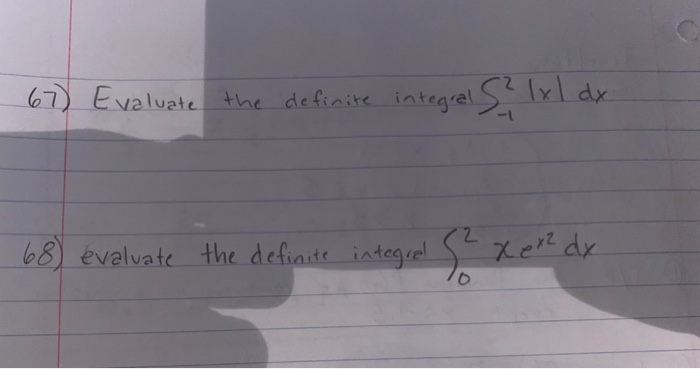 67) Evaluate the definite integral ∫₋₁² |x| dx
68) evaluate the definite integral ∫₀² xeˣ² dx